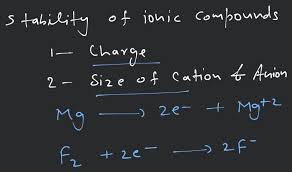 stability of ionic compounds
1 — Charge
2 - Size of Cation & Anion
Mg ⟶ 2e⁻ + Mg⁺²
F₂ + 2e⁻ ⟶ 2F⁻